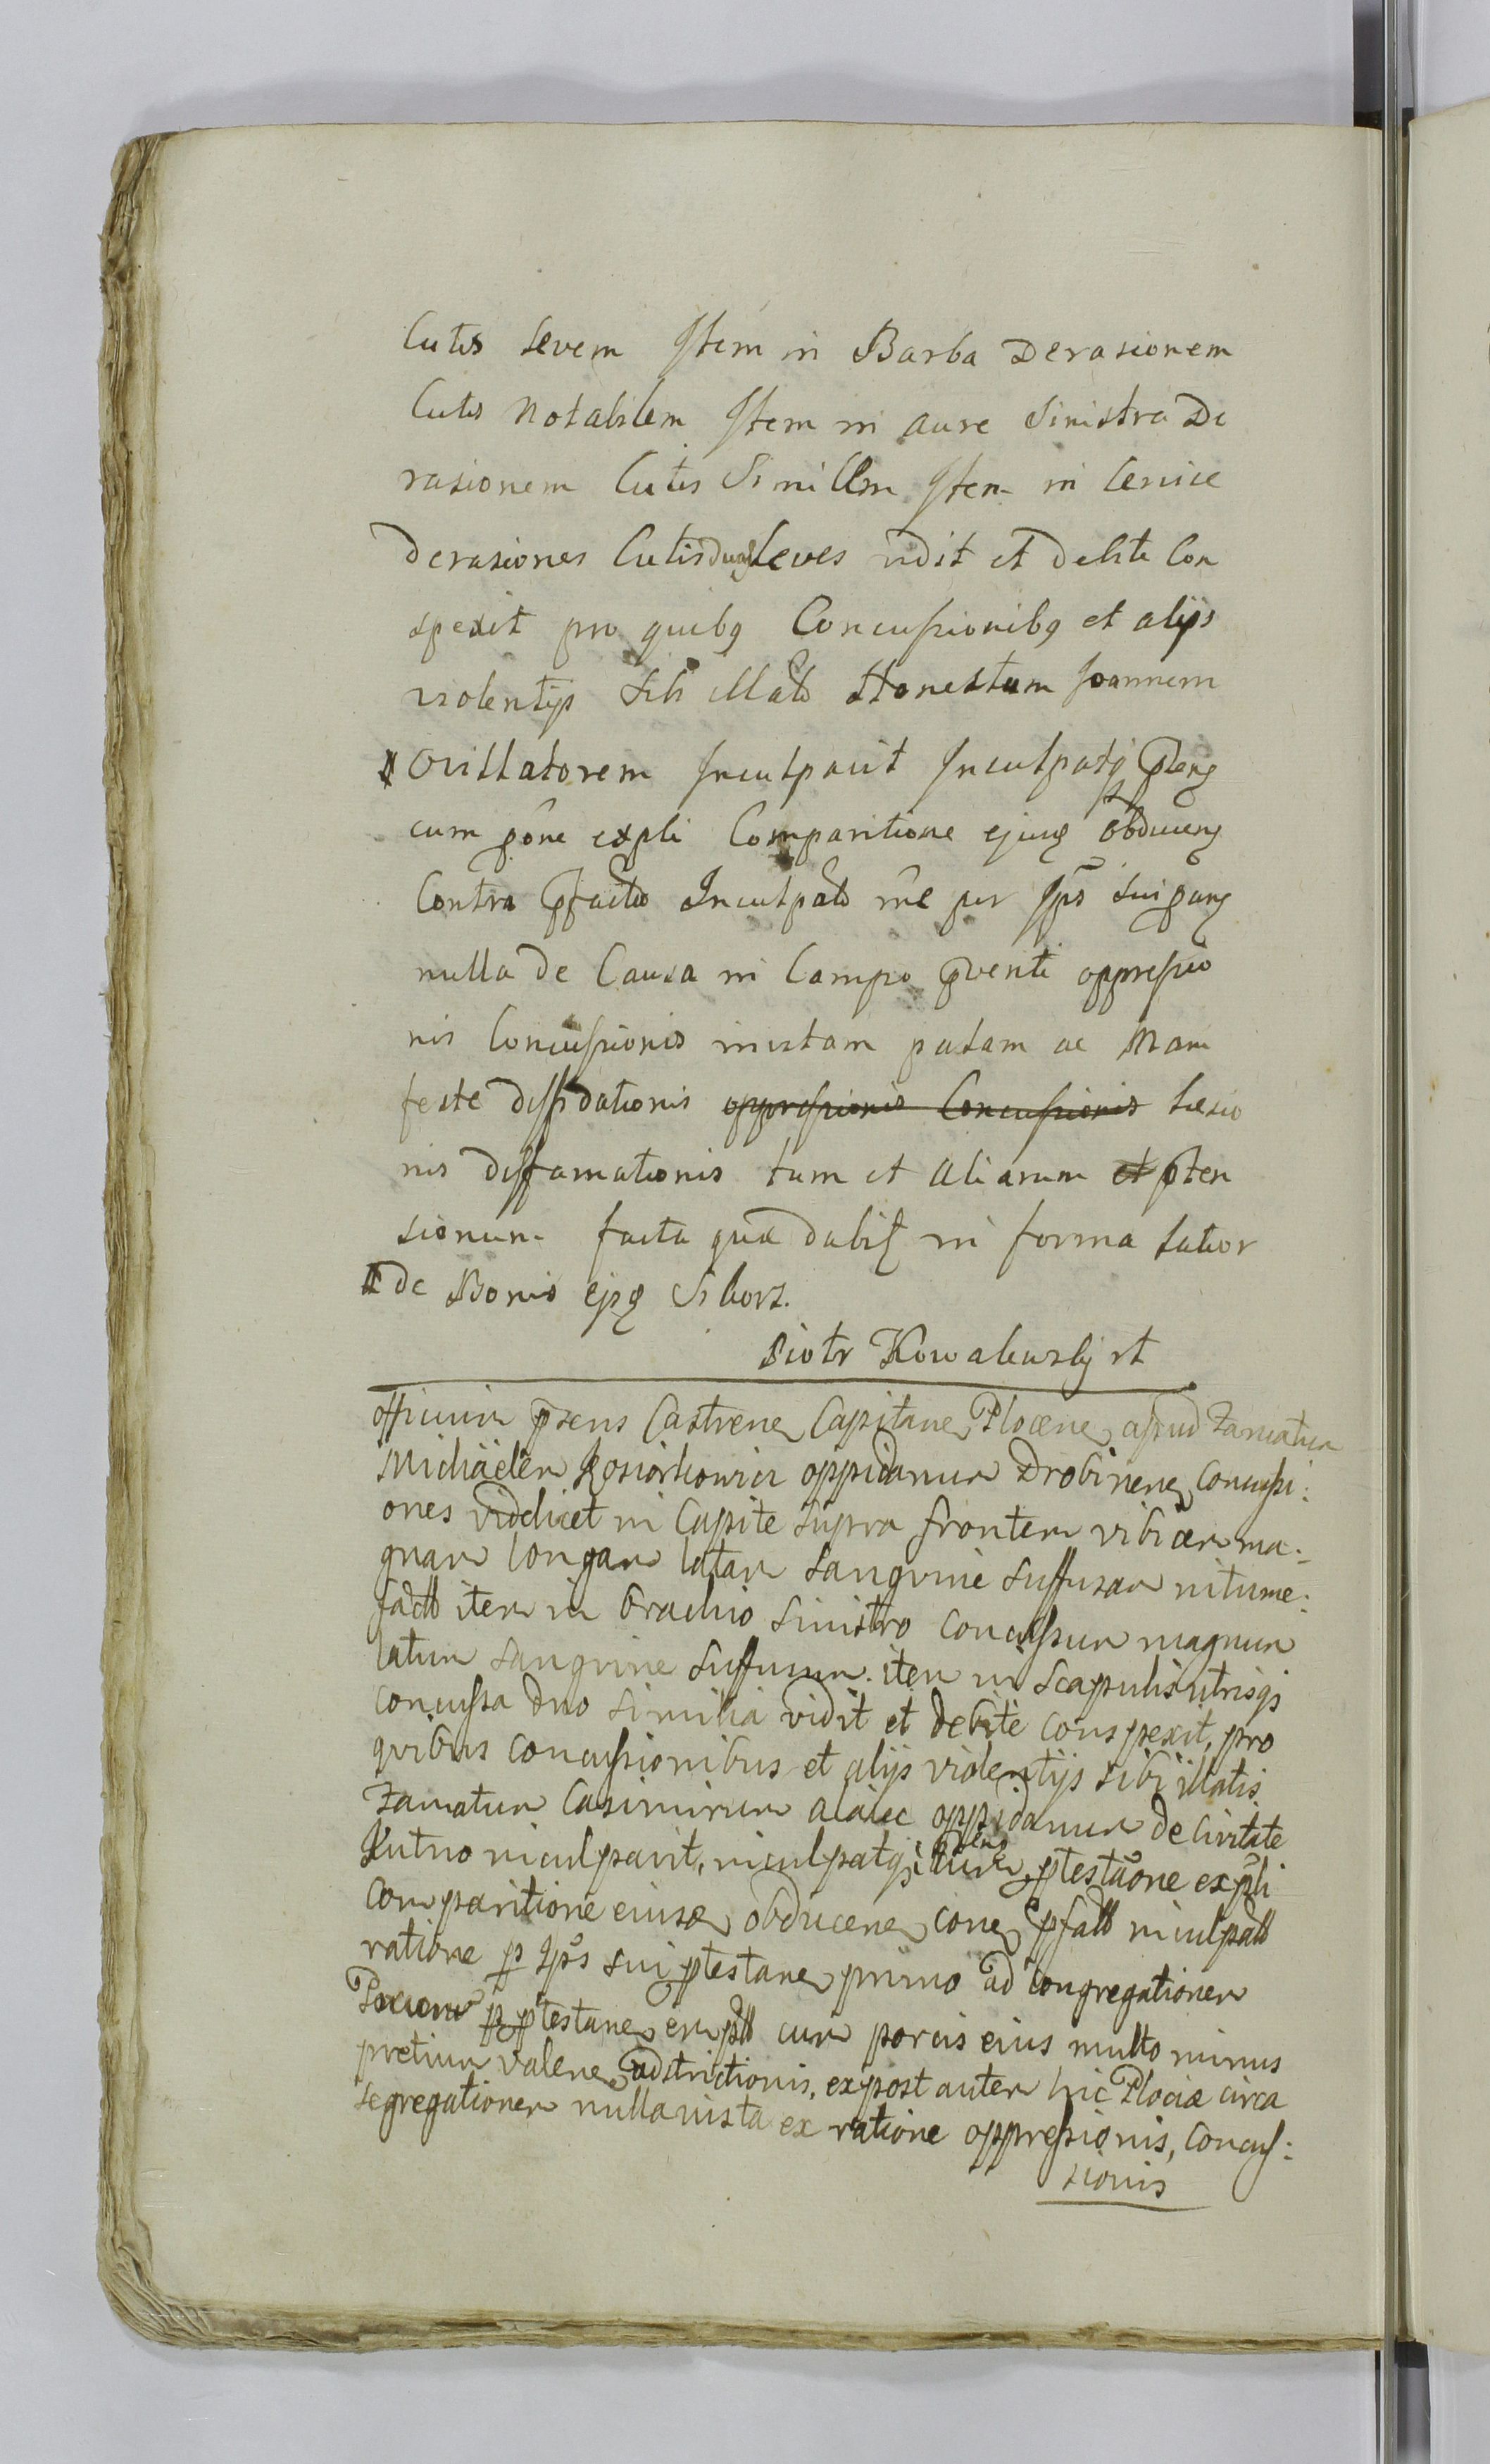 Cutis levem Item in Barba Derasionem
Cutis Notabilem Item in aure Sinistra De
rasionem Cutis Similem Item in Cervice
Derasiones Cutis duas leves vidit et Debite Con
spexit pro quibq Concussionibq et alijs
violentijs Sibi illatis Honestum Joannem
Ovillatorem Inculpavit Inculpatq
cum expli Comparitione ejusq obducenq
Contra Inculpato rne per Ips sui
nulla de Causa in Campo pventi oppressio
nis Concussionis iniustam palam ac Mani
feste diffidationis oppressionis Concussionis Læsio
nis diffamationis tum et aliarum et pten
sionum facta qua dabil in forma latior
de Bonis ejsq Si lbors.
Piotr Kowalewsky rt
Officium psens Castrene Capitane Plocene apud Famatum
Michäelem oppidanum Drobinene concussi:
ones videlicet in Capite supra frontem vibicem ma:
gnam longam latam sangvine suffusam intume:
factt item in brachio sinistro concussum magnum
latum sangvine suffusum. item in scapulis utrisqs
concussa duo similia vidit et debite conspexit, pro
qvibus concussionibus et alijs violentijs sibi illatis
Famatum Casimirum oppidanum de Civitate
Kutno inculpavit, inculpatqs ptestaone expli
comparitione eiusq obducene cone pfatt inculpatt
ratione p Ips sui ptestane primo ad congregationem
Porcorum p ptestane emptt cum porcis eius multo minus
pretium valene adstrictionis, expost autem hic Plociæ circa
segregationem nulla iusta ex ratione oppressionis, concus:
sionis